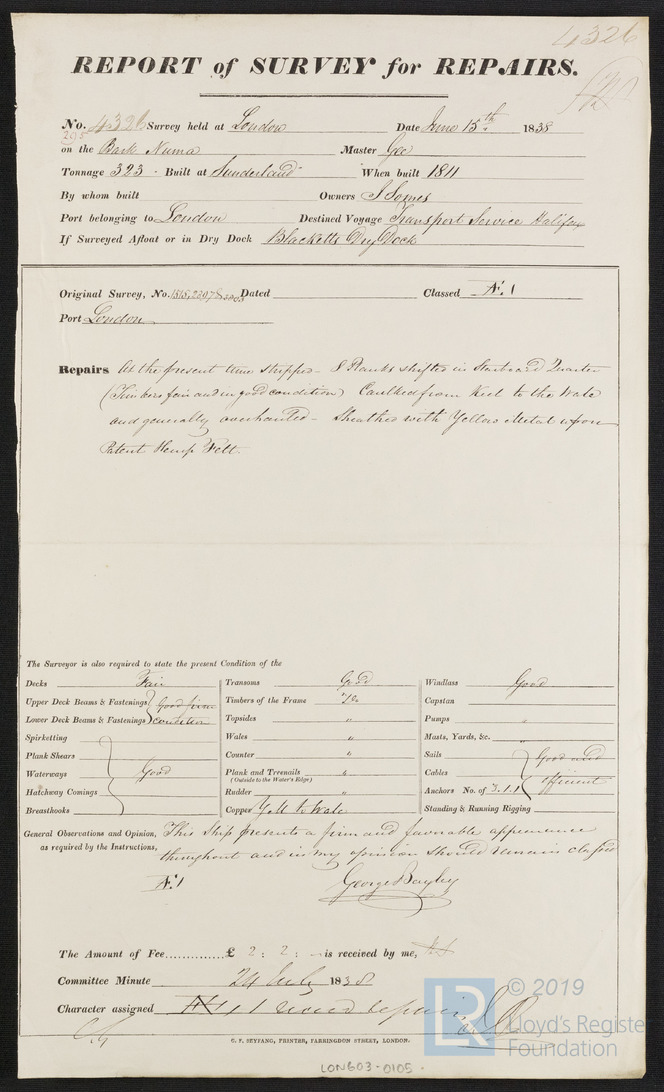 4326
REPORT of SURVEY for REPAIRS.
No. 4326 Survey held at London Date June 15th 1838
on the Bark Numa Master Gee
Tonnage 323 Built at Sunderland When built 1811
By whom built Owners J Somes
Port belonging to London Destined Voyage Transport Service Halifax
If Surveyed Afloat or in Dry Dock Blacketts Dry Dock
Original Survey, No. Dated Classed Æ 1
Port London
Repairs At the present time stripped - 8 Planks shifted in Starboard Quarter
(Timbers fair and in good condition) Caulked from Keel to the Wale
and generally overhauled - Sheathed with Yellow Metal upon
Patent Hemp Felt.
The Surveyor is also required to state the present Condition of the
Decks Fair
Upper Deck Beams & Fastenings Good firm
Lower Deck Beams & Fastenings condition
Spirketting
Plank Shears
Waterways Good
Hatchway Comings
Breasthooks
Transoms Good
Timbers of the Frame Do
Topsides "
Wales "
Counter "
Plank and Treenails "
(Outside to the Water's Edge)
Rudder "
Copper Y.M to Wale
Windlass Good
Capstan "
Pumps "
Masts, Yards, &c. "
Sails Good and
Cables efficient
Anchors No. of 3.1.1
Standing & Running Rigging
General Observations and Opinion, This Ship presents a firm and favorable appearance
as required by the Instructions, throughout and in my opinion should remain classed
Æ 1
George Bayley
The Amount of Fee £ 2 : 2 : - is received by me,
Committee Minute 24 July 1838
Character assigned Æ 1
C. F. SEYFANG, PRINTER, FARRINGDON STREET, LONDON.
LON603-0105
© 2019
LR
Lloyd's Register
Foundation